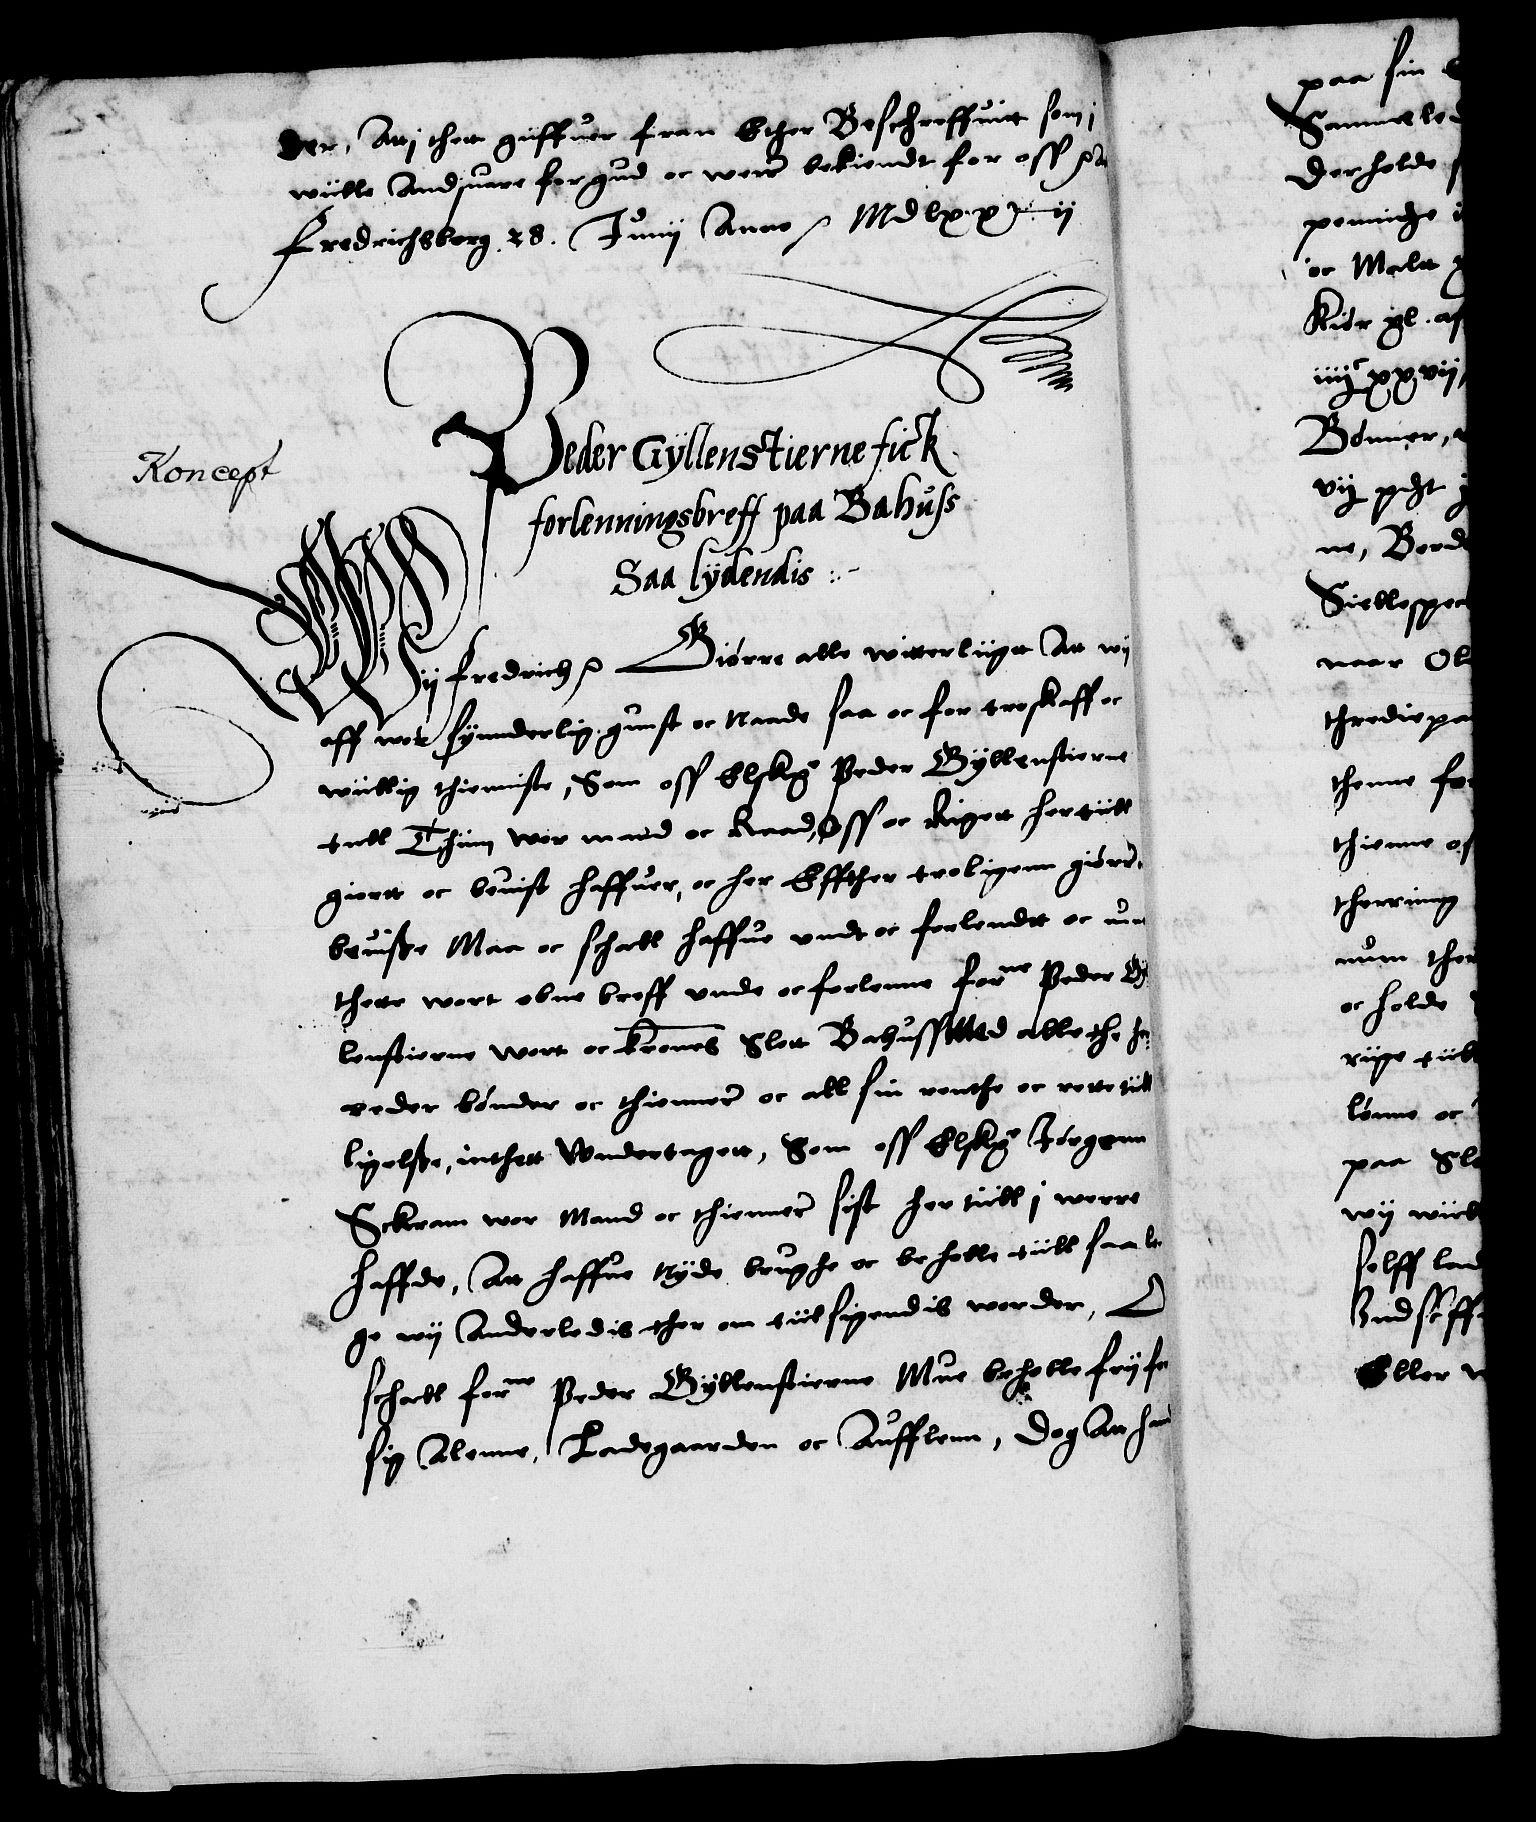 der, Att i thett giffuer fran Ether Beschreffuitt som i
wiille andsuare for gud oc were bekiendt for oss
Fredrichsborg 28. Junij Anno MdLxx ij
Koncept
Peder Gyllenstierne fick
forlenningsbreff paa Bahuss
Saa lydendis :-
Wij Fredrich Giörre alle witterligt Att wij
aff wor synnderlig gunst oc naade saa oc for troskaff oc
wiillig thienniste, Som oss Elskg Peder Gyllenstierne
till Thim wor mand oc Raad, Oss oc Rigett her tiill
giortt oc beuist haffuer, oc her Effther troligenn giörre
beuisse Maa oc schall haffue undt oc forlendtt oc nu
thette wort obne breff unde oc forlenne forne Peder Gÿ
lenstierne wort oc Krones Slott Bahuss Med alle the he
reder bönder oc thiennere oc all sin renthe oc rette till
ligelsse, inthett Undertagett, Som oss Elskg Jörgenn
Sckram wor Mand oc thiennere sist her tiill i werre
haffde, Att haffue Nyde brughe oc beholle tiill saa len
ge wij Anderledis ther om tiilsigendis worder, O
schall forne Peder Gyllenstierne Mue beholle frij for
sig Alenne, Ladegaarden oc Aufflenn, Dog Att hand
paa sin
Samme
Der holde
penninge
oc Malt
Kiör
iiijc xxvij
Bönner,
vij
ne,
Siellespec
naar
thredie pa
thenne for
thienne
therring
num ther
oc holde
rige tiill
lönne oc
paa Slo
wij wiill
selff lad
Eller